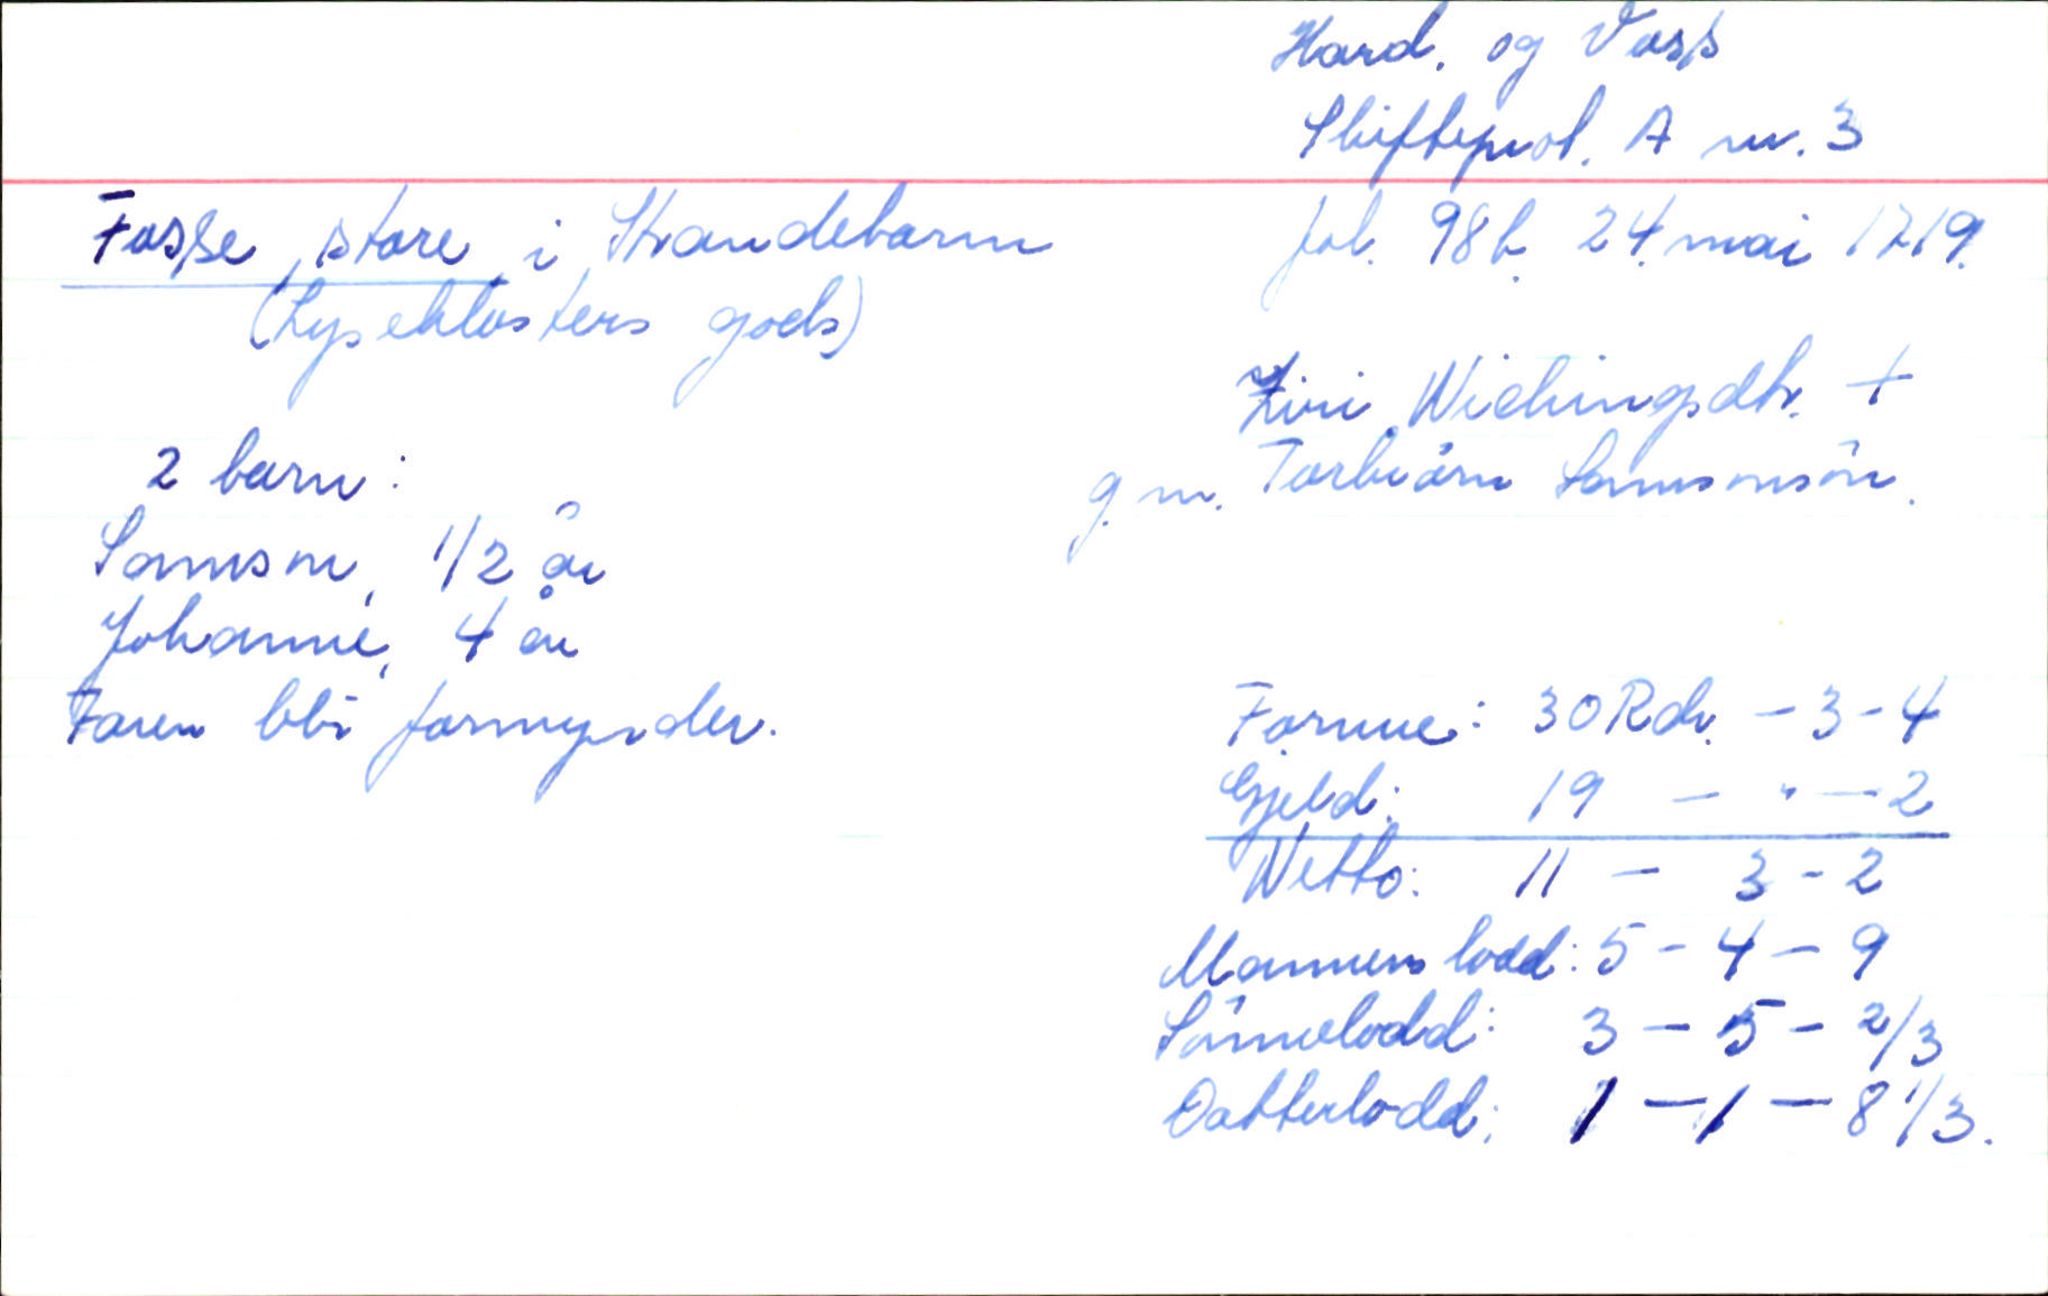 Hard. og Voss
Skifteprot. A nr. 3
Fosse, store, i Strandebarm
fol. 98b. 24. mai 1719.
(Lyseklosters gods)
Ziri Wichingsdtr. +
g. m. Torbiörn Samsonsön.
2 barn:
Samson, 1/2 år
Johanne, 4 år
Faren bli formynder.
Formue: 30 Rdr. - 3 - 4
Gjeld: 19 - " - 2
Netto: 11 - 3 - 2
Mannens lodd: 5 - 4 - 9
Sönnelodd: 3 - 5 - 2/3
Datterlodd: 1 - 1 - 8 1/3.